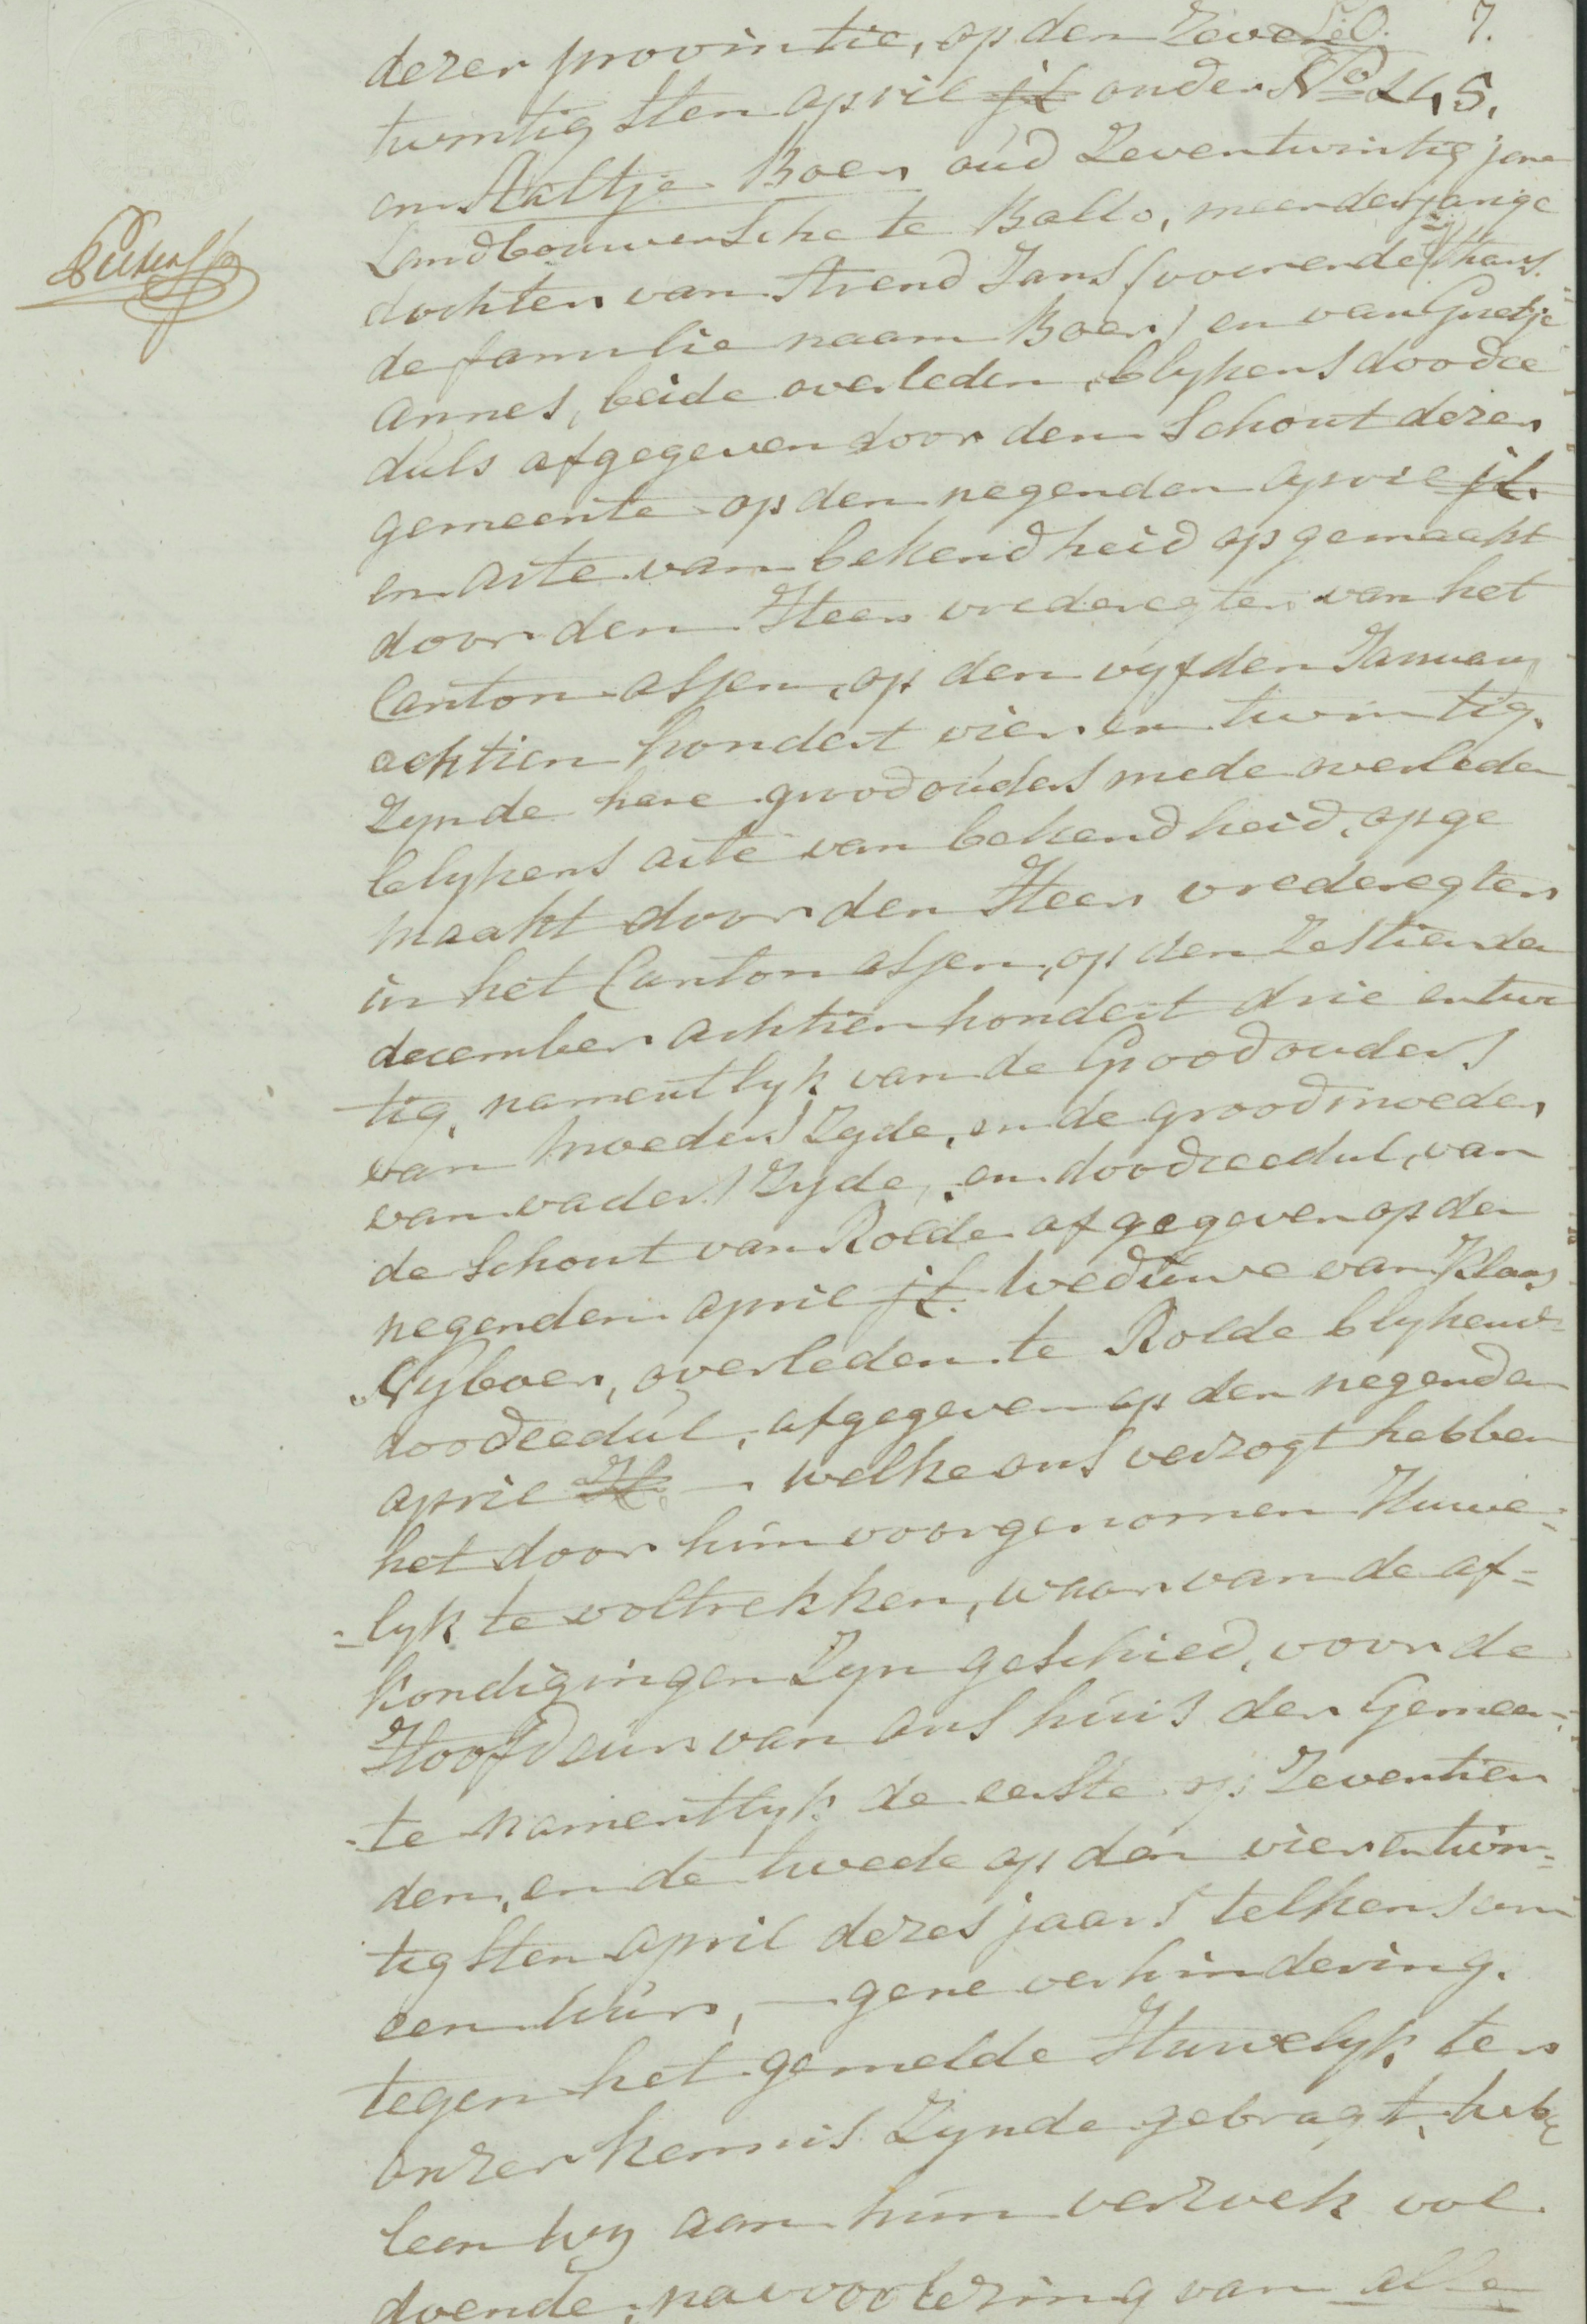 F:O. 7.
dezer provintie, op den Zeven
twintigsten april jl onder No 245.
en Aaltje Boer oud Zeventwintig jare
Landbouwersche te Ballo, meerderjarige
dochter van Arend Jans (voerende thans
de familie naam Boer) en van Grietje
Annes, beide overleden, blykens doodce
duls afgegeven door den Schout dezer
gemeente op den negenden april jl.
en acte van bekendheid opgemaakt
door den Heer vrederegter van het
Canton assen, op den vyfden January
achtien hondert vier en twintig.
Zynde hare grootouders mede overleden
blykens acte van bekendheid, opge
maakt door den Heer vrederegter
in het Canton assen, op den Zestienden
december achtien hondert drie en twin
tig, namentlyk van de Grootouders
van moeders Zyde, en de grootmoeder
van vaders Zyde, en doodceedul, van
de Schout van Rolde afgegeven op den
negenden april jl. weduwe van Klaas
Nyboer, overleden te Rolde blykend
doodceedul, afgegeven op den negenden
april jl. – welke ons verzogt hebben
het door hun voorgenomen Huwe-
-lyk te voltrekken, waarvan de af-
kondigingen Zyn geschied, voor de
Hoofdeur van ons huis der Gemeen-
-te namentlyk de eerste op Zeventien
den, en de twede op den vierentwin-
tigsten april dezes jaars telkens om
een uur, – gene verhindering.
tegen het gemelde Huwelyk ter
onzer kennis Zynde gebragt, heb
ben wy aan hun verzoek vol
doende, na voorlezing van alle